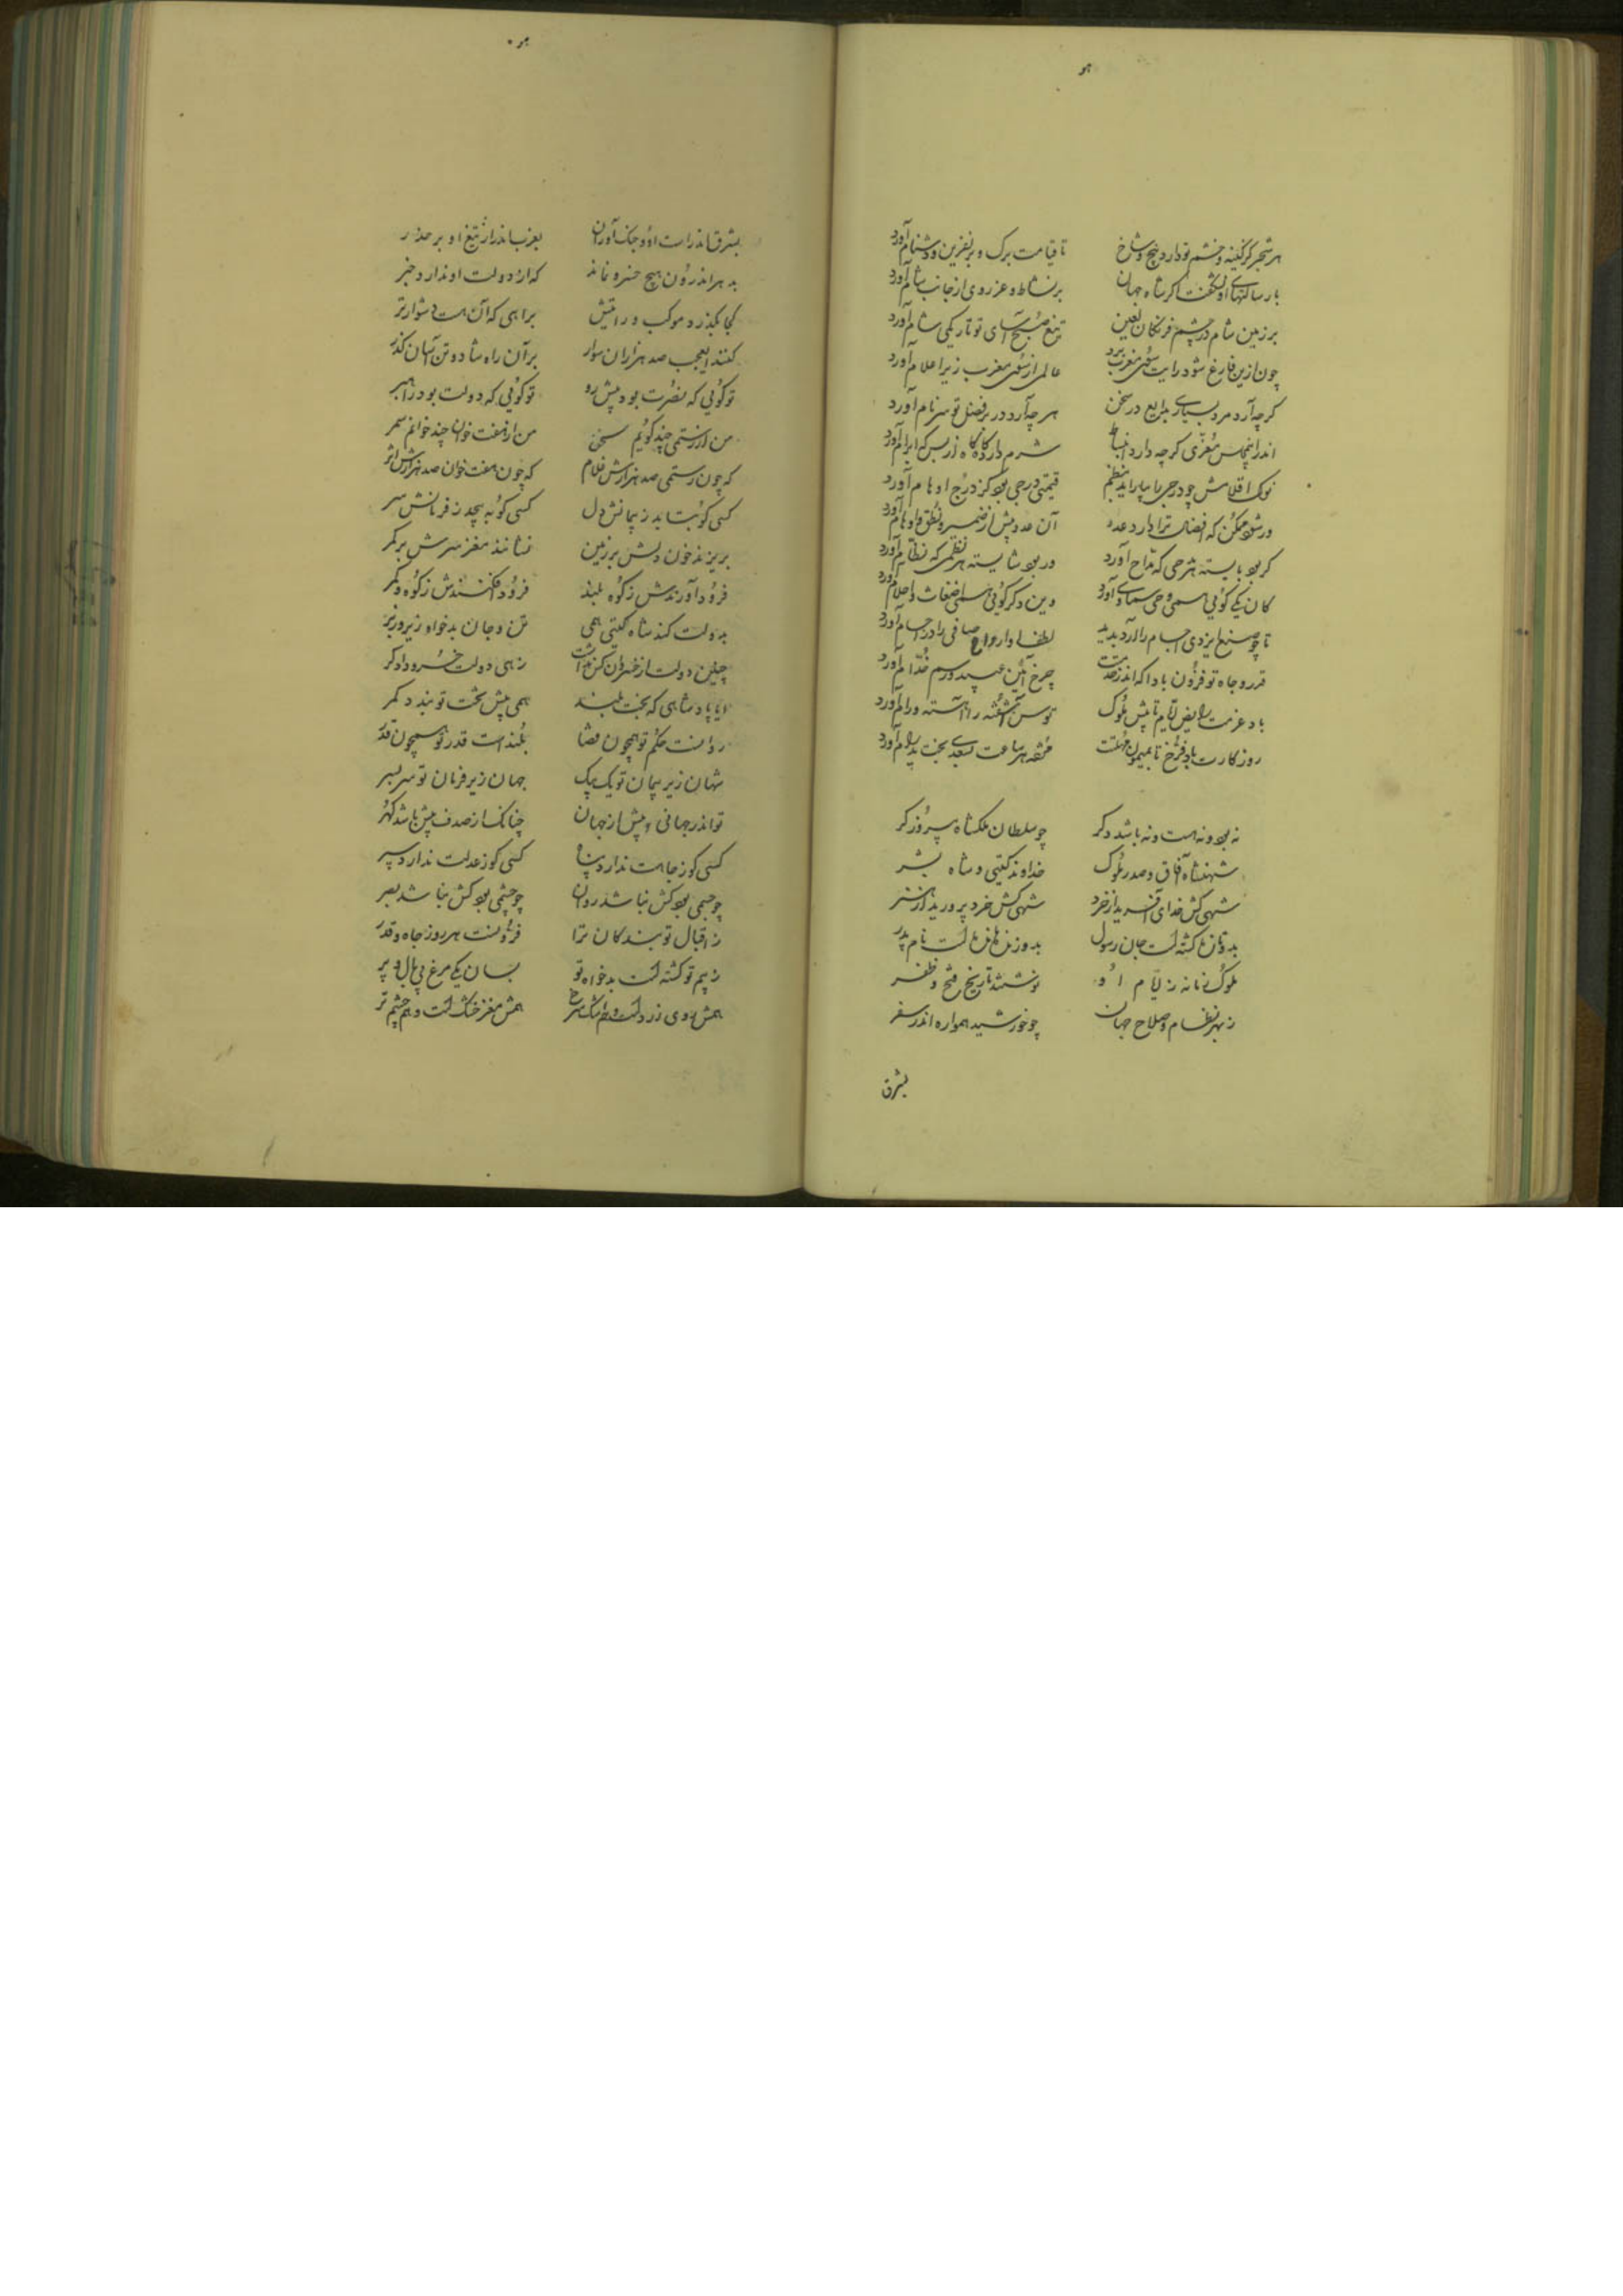 هر شجر کز کینه و خشم تو دارد بیخ و شاخ تا قیامت برگ و بر نفرین و دشنام آورد
با رسالتهای او نشگفت اگر شاه جهان بر نشاط و عز روی از جانب شام آورد
بر زمین شام در چشم فرنگان لعین تیغ صبح آسای تو تاریکی شام آورد
چون ازین فارغ شود رایت سوی مغرب برد عالمی از سوی مغرب زیر اعلام آورد
گرچه آرد مرد بسیاری بدایع در سخن هر چه آرد در بر فضل تو سرنام آورد
اندرین مجلس معزی گرچه دارد انبساط شرم دارد گاه گاه از بس که ابرام آورد
نوک اقلامش چو درجی را بیاراید بنظم قیمتی درجی بود کز درج اوهام آورد
ور شود ممکن که افضالت ترا دارد عدد آن عدد بیش از ضمیر و نطق و اوهام آورد
گر بود بایسته هر شرحی که مداح آورد ور بود شایسته هر نظمی که نظام آورد
کان یکی گویی همی وحی سماوی آورد وین دگر گویی همی اضغاث و احلام آورد
تا چو صنع ایزدی اجسام را آرد پدید لطف او ارواح صافی را در اجسام آورد
قدر و جاه تو فزون بادا که اندر خدمتت چرخ آیین عبید و رسم خدام آورد
باد عزمت رایض ایام تا پیش ملوک توسن آشفته را آهسته و رام آورد
روزگارت باد فرخ تا بمیمون خدمتت تحفه هر ساعت بسعدی بخت پدرام آورد
نه بود و نه هست و نه باشد دگر چو سلطان ملکشاه پیروزگر
شهنشاه آفاق و صدر ملوک خداوند گیتی و شاه بشر
شهی کش خدای آفرید از خرد شهی کش خرد پرورید از هنر
بدو تازه گشته است جان رسول بدو زنده مانده است نام پدر
ملوک زمانه ز ایام او نوشتند تاریخ فتح و ظفر
ز بهر نظام و صلاح جهان چو خورشید همواره اندر سفر
بشرق
بشرق اندر است او و جنگ آوران بغرب اندر از تیغ او بر حذر
بدهر اندرون هیچ خسرو نماند که از دولت او ندارد خبر
کجا بگذرد موکب و رایتش براهی که آن هست دشوارتر
کنند ای عجب صد هزاران سوار بر آن راه شاد و تن آسان گذر
تو گویی که نصرت بود پیش رو تو گویی که دولت بود راهبر
من از رستمی چند گویم سخن من از هفت خوان چند خوانم سمر
که چون رستمی صد هزارش غلام که چون هفت خوان صد هزارش اثر
کسی کو بتابد ز پیمانش دل کسی کو بپیچد ز فرمانش سر
بریزند خون دلش بر زمین نشانند مغز سرش بر کمر
فرود آورندش ز کوه بلند فرود افکنندش ز کوه و کمر
بدولت کند شاه گیتی همی تن و جان بدخواه زیر و زبر
چنین دولت از خسروان کس نداشت زهی دولت خسرو دادگر
ایا پادشاهی که بخت بلند همی پیش تخت تو بندد کمر
روانست حکم تو همچون قضا بلند است قدر تو همچون قدر
شهان زیر پیمان تو یک بیک جهان زیر فرمان تو سر بسر
تو اندر جهانی و بیش از جهان چنانک از صدف بیش باشد گهر
کسی کو ز جاهت ندارد پناه کسی کو ز عدلت ندارد سپر
چو جسمی بود کش نباشد روان چو چشمی بود کش نباشد بصر
ز اقبال تو بندگان ترا فزونست هر روز جاه و قدر
ز بیم تو گشته است بدخواه تو بسان یکی مرغ بی بال و پر
همش روی زرد است و هم اشک سرخ همش مغز خشک است و هم چشم تر